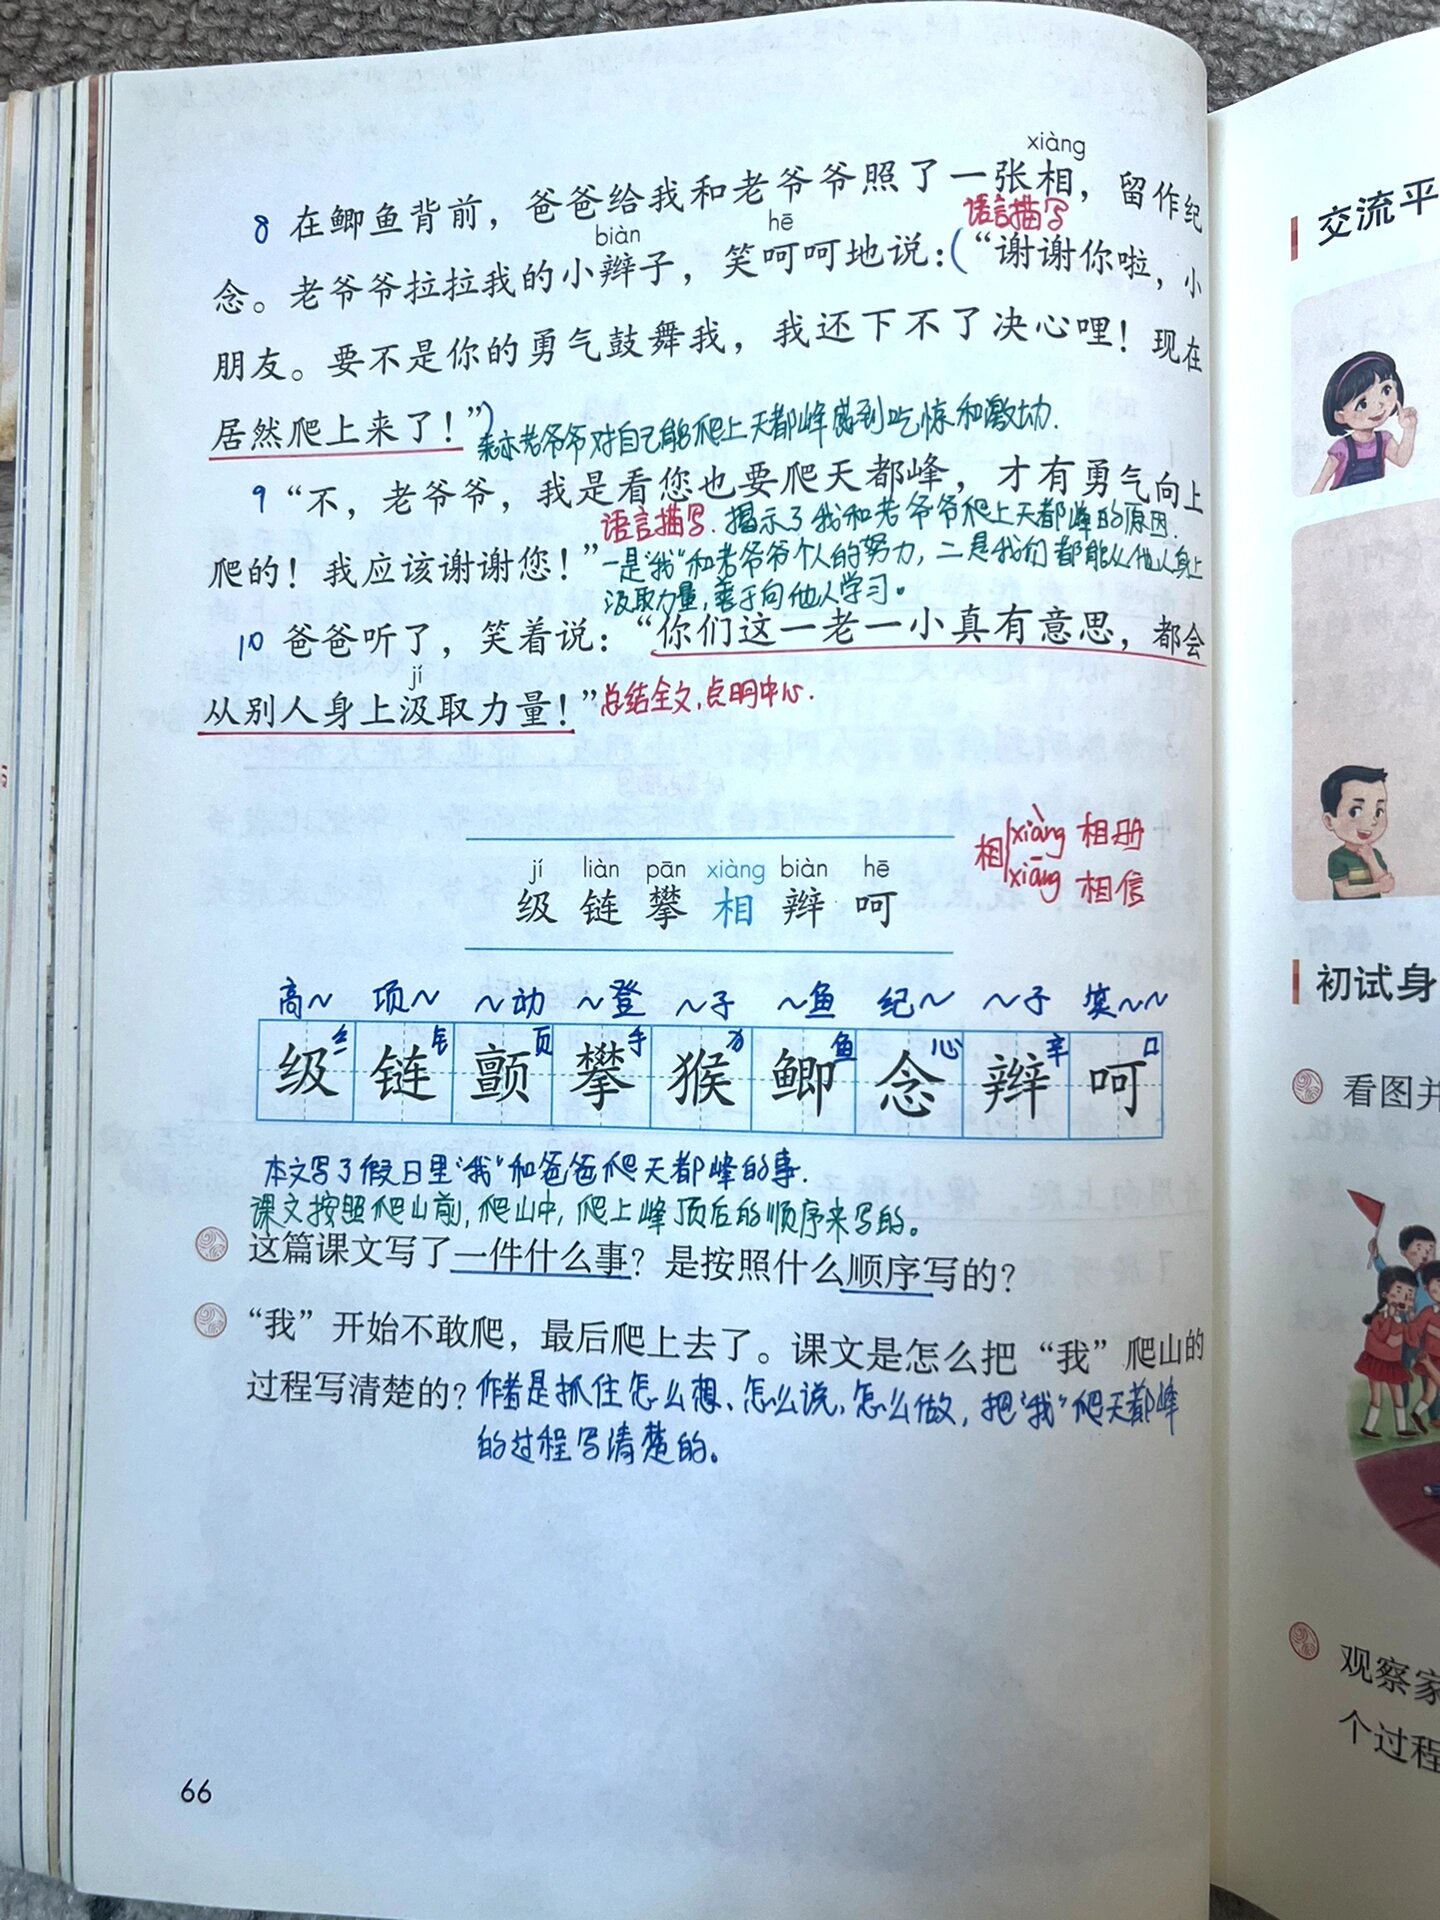 xiàng
8 在鲫鱼背前，爸爸给我和老爷爷照了一张相，留作纪
语言描写
biàn hē
念。老爷爷拉拉我的小辫子，笑呵呵地说：(“谢谢你啦，小
朋友。要不是你的勇气鼓舞我，我还下不了决心哩！现在
居然爬上来了！”)
表示老爷爷对自己能爬上天都峰感到吃惊和激动.
9 “不，老爷爷，我是看您也要爬天都峰，才有勇气向上
语言描写. 揭示了我和老爷爷爬上天都峰的原因.
爬的！我应该谢谢您！”
一是“我”和老爷爷个人的努力，二是我们都能从他人身上
汲取力量，善于向他人学习。
10 爸爸听了，笑着说：“你们这一老一小真有意思，都会
jí
从别人身上汲取力量！”
总结全文，点明中心.
相 xiàng 相册
xiāng 相信
jí liàn pān xiàng biàn hē
级 链 攀 相 辫 呵
高～ 项～ ～动 ～登 ～子 ～鱼 纪～ ～子 笑～～
纟 钅 页 手 犭 鱼 心 辛 口
级 链 颤 攀 猴 鲫 念 辫 呵
本文写了假日里“我”和爸爸爬天都峰的事.
课文按照爬山前，爬山中，爬上峰顶后的顺序来写的。
这篇课文写了一件什么事？是按照什么顺序写的？
“我”开始不敢爬，最后爬上去了。课文是怎么把“我”爬山的
过程写清楚的？
作者是抓住怎么想、怎么说，怎么做，把“我”爬天都峰
的过程写清楚的。
66
交流平
初试身
看图并
观察家
个过程